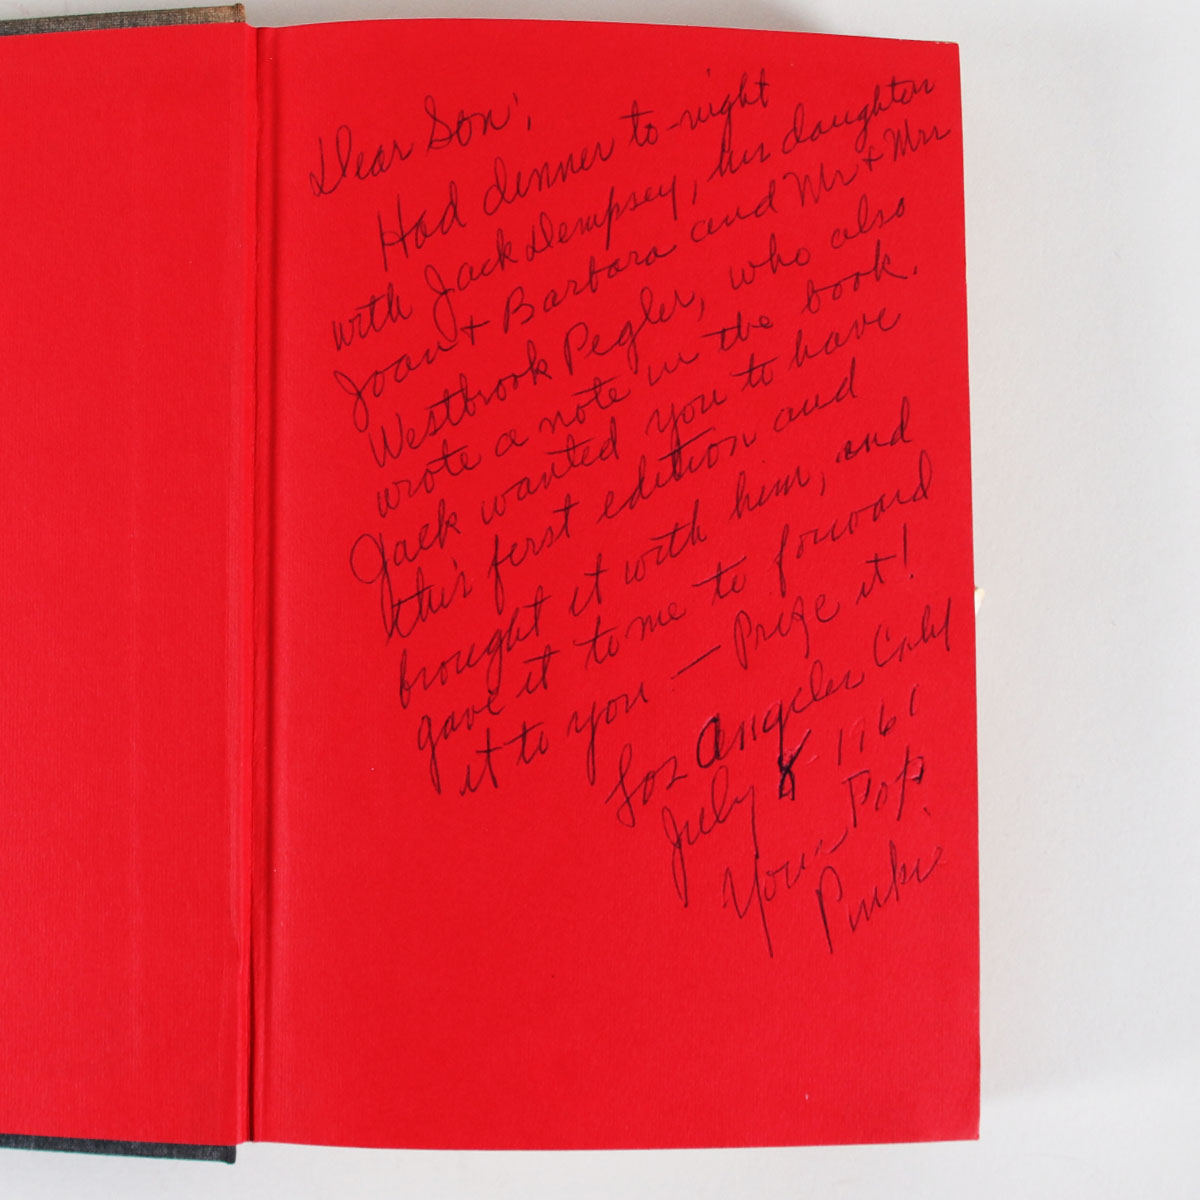 Dear Son,
Had dinner to-night
with Jack Dempsey, his daughters
Joan + Barbara and Mr + Mrs
Westbrook Pegler, who also
wrote a note in the book.
Jack wanted you to have
this first edition and
brought it with him, and
gave it to me to forward
it to you — Prize it!
Los Angeles Calif
July 8 1961
Your Pop.
Pinkie